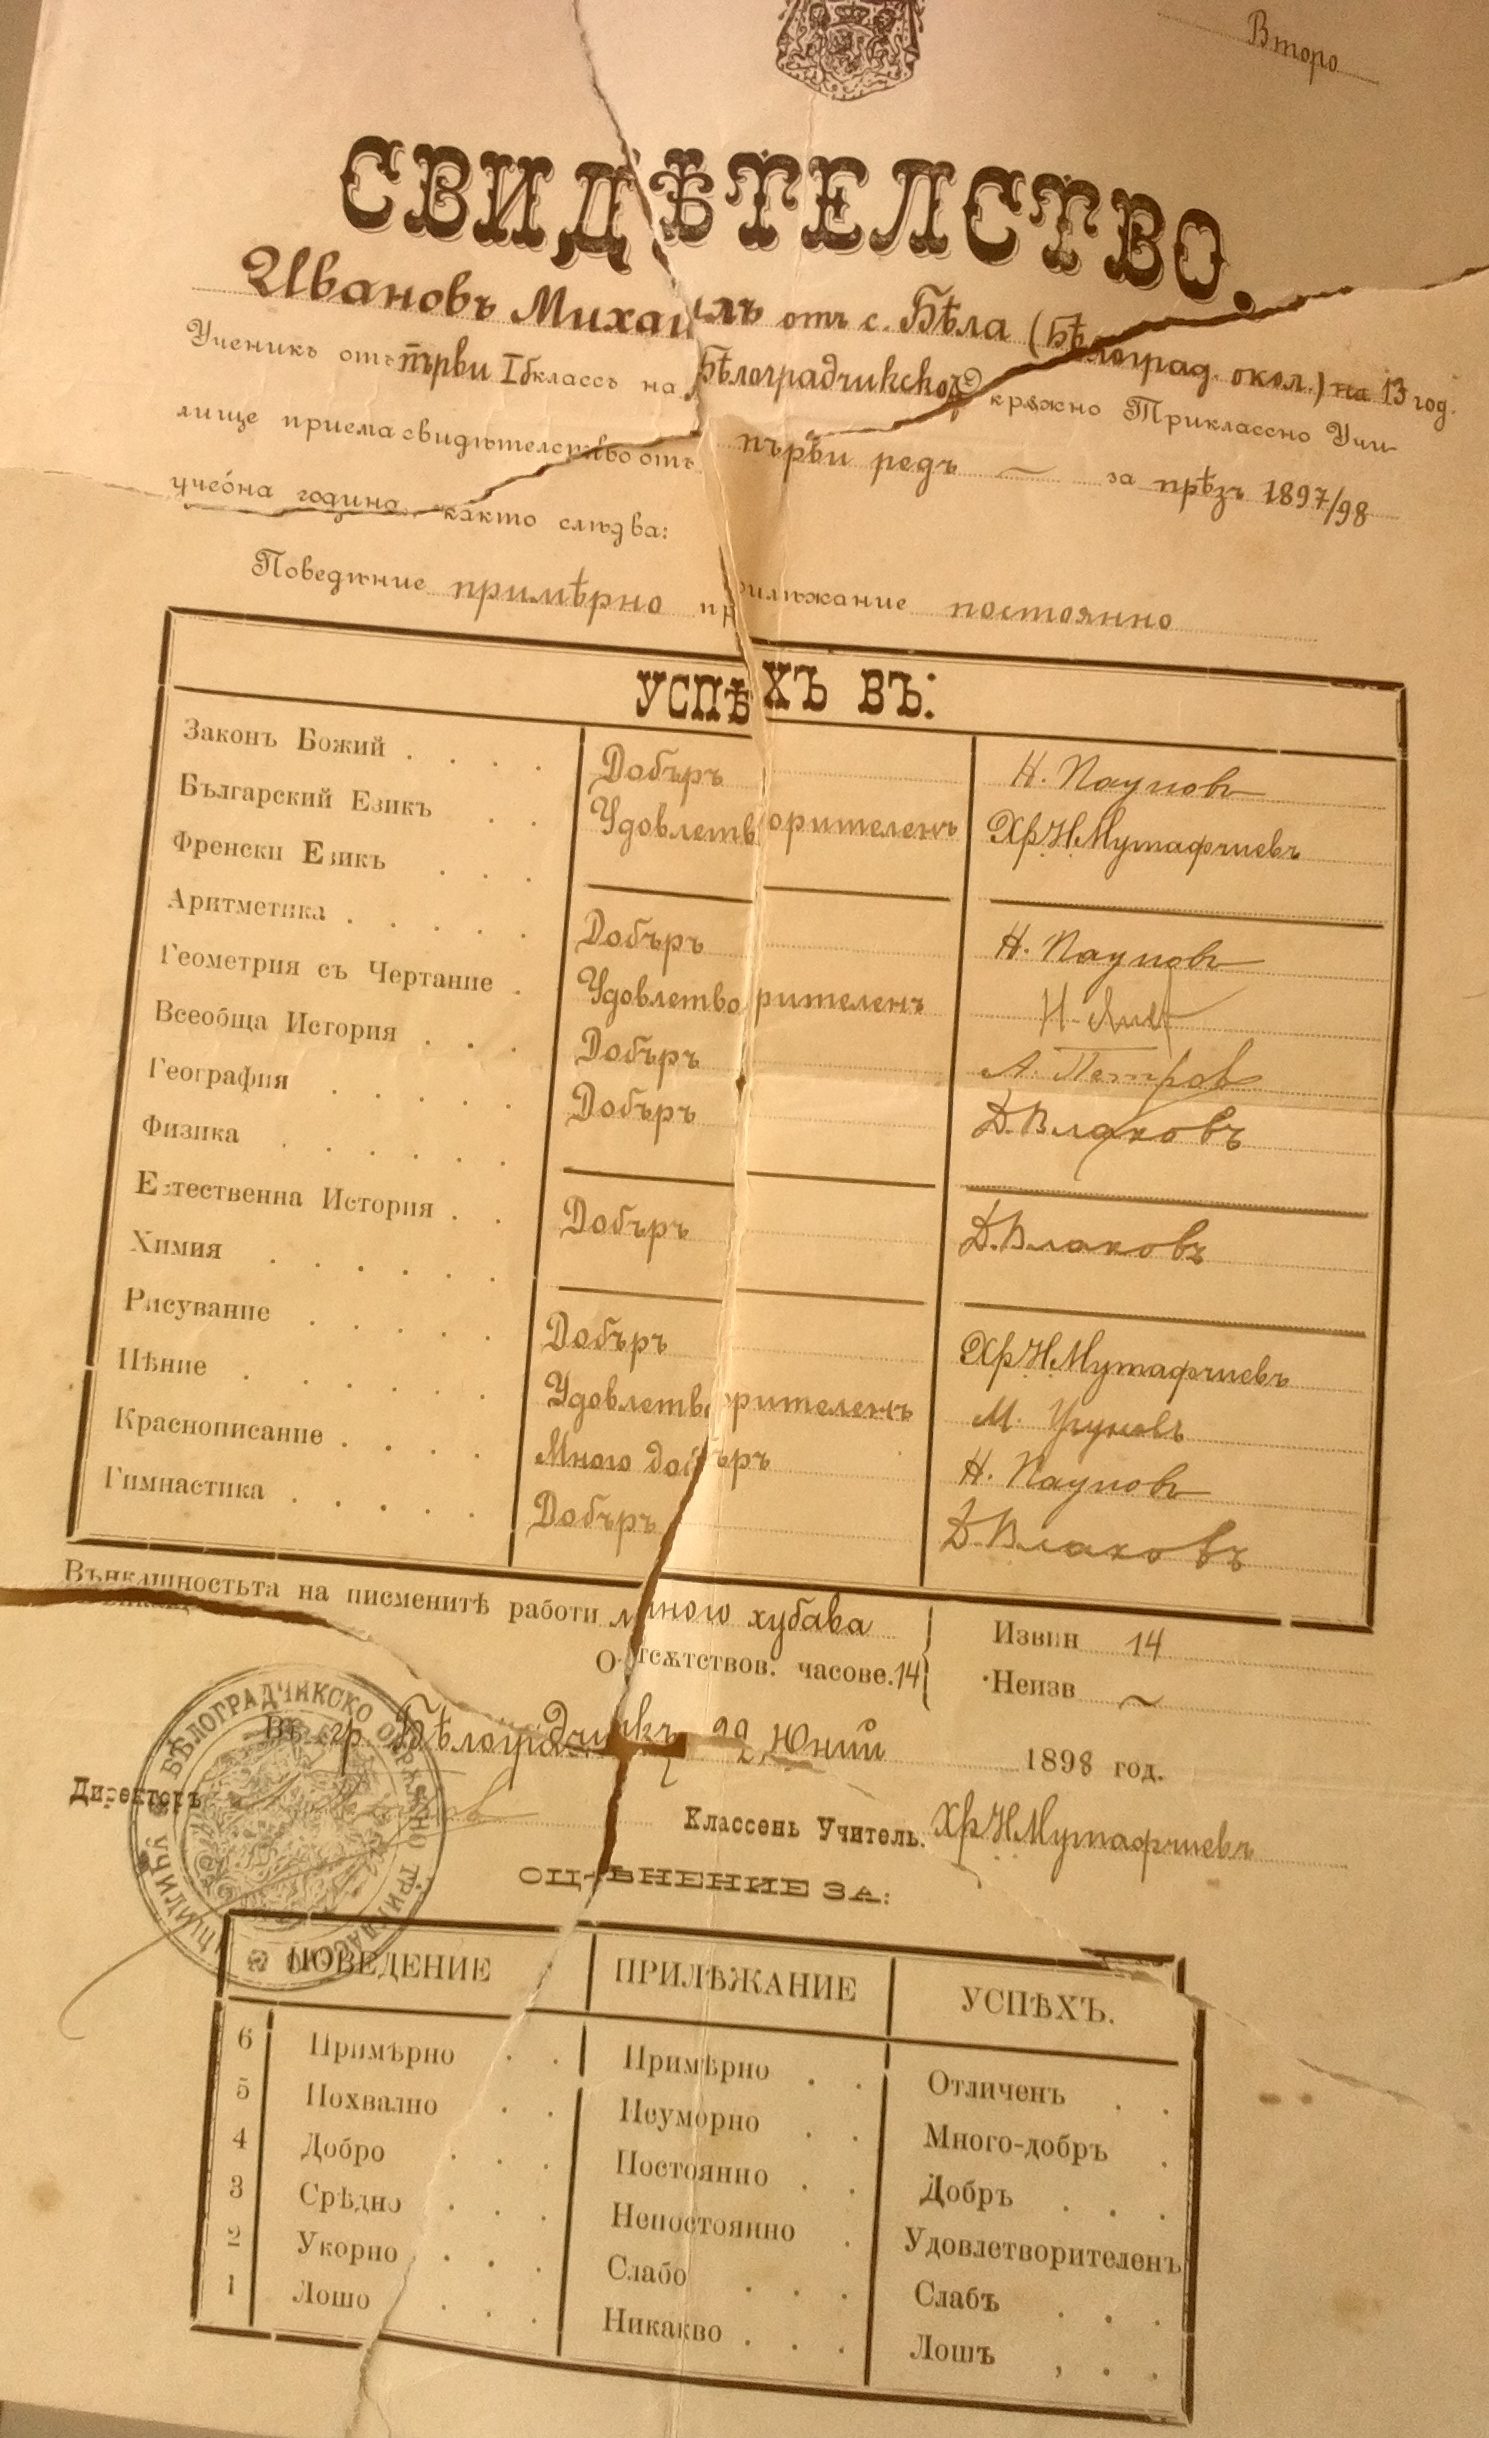 Второ
СВИДѢТЕЛСТВО.
Ивановъ Михаилъ отъ с. Бѣла (Бѣлоград. окол.) на 13 год.
Ученикъ отъ първи Iб классъ на Бѣлоградчикско Окрѫжно Триклассно Учи-
лище приема свидѣтелство отъ първи редъ — за прѣзъ 1897/98
учебна година, както слѣдва:
Поведѣние примѣрно прилѣжание постоянно
УСПѢХЪ ВЪ:
Законъ Божий . . . . Добъръ Н. Пауновъ
Български Езикъ . . Удовлетворителенъ Хр. Н. Мутафчиевъ
Френски Езикъ . . . —
Аритметика . . . . . Добъръ Н. Пауновъ
Геометрия съ Чертание . Удовлетворителенъ Н.
Всеобща История . . . Добъръ А. Петровъ
География . . . . . Добъръ Д. Влаховъ
Физика . . . . . . —
Естественна История . . Добъръ Д. Влаховъ
Химия . . . . . . —
Рисувание . . . . . Добъръ Хр. Н. Мутафчиевъ
Пѣние . . . . . . Удовлетворителенъ М.
Краснописание . . . . Много добъръ Н. Пауновъ
Гимнастика . . . . . Добъръ Д. Влаховъ
Вънкашностьта на писменитѣ работи много хубава Извин 14
Отсѫтствов. часове. 14 Неизв ~
Въ гр. Бѣлоградчикъ 22 Юний 1898 год.
Директоръ
Классенъ Учитель. Хр. Н. Мутафчиевъ
БѢЛОГРАДЧИКСКО ОКРѪЖНО ТРИКЛАССНО УЧИЛИЩЕ
ОЦѢНЕНИЕ ЗА:
ПОВЕДЕНИЕ ПРИЛѢЖАНИЕ УСПѢХЪ.
6 Примѣрно . . Примѣрно . . Отличенъ . .
5 Похвално . . Неуморно . . Много-добръ .
4 Добро . . . Постоянно . . Добръ . . .
3 Срѣдно . . . Непостоянно . Удовлетворителенъ
2 Укорно . . . Слабо . . . Слабъ . . .
1 Лошо . . . Никакво . . . Лошъ , . .